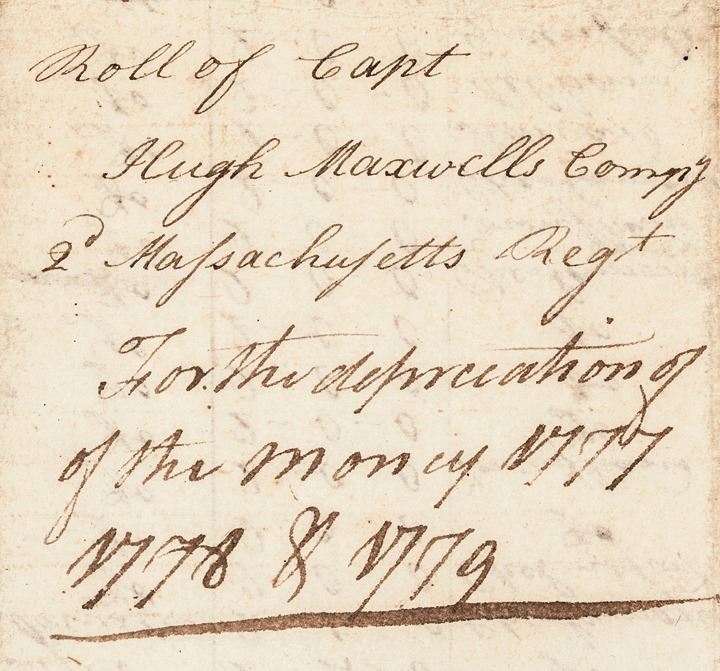 Roll of Capt
Hugh Maxwells Compy
2d Maſsachuſetts Regt
For the depreciation of
of the money 1777
1778 & 1779